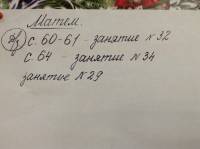 Матем.
Д/з с. 60-61 - занятие №32
с. 64 - занятие №34
занятие №29